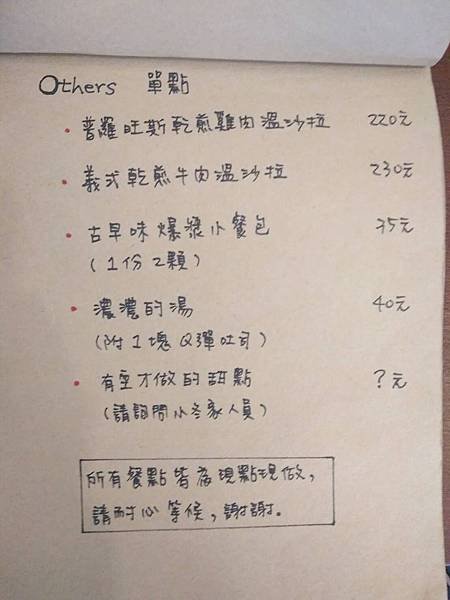 Others 單點
普羅旺斯乾煎雞肉溫沙拉 220元
義式乾煎牛肉溫沙拉 230元
古早味爆漿小餐包 35元
(1份2顆)
濃濃的湯 40元
(附1塊Q彈吐司)
有空才做的甜點 ?元
(請詢問小冬家人員)
所有餐點皆為現點現做,
請耐心等候,謝謝。